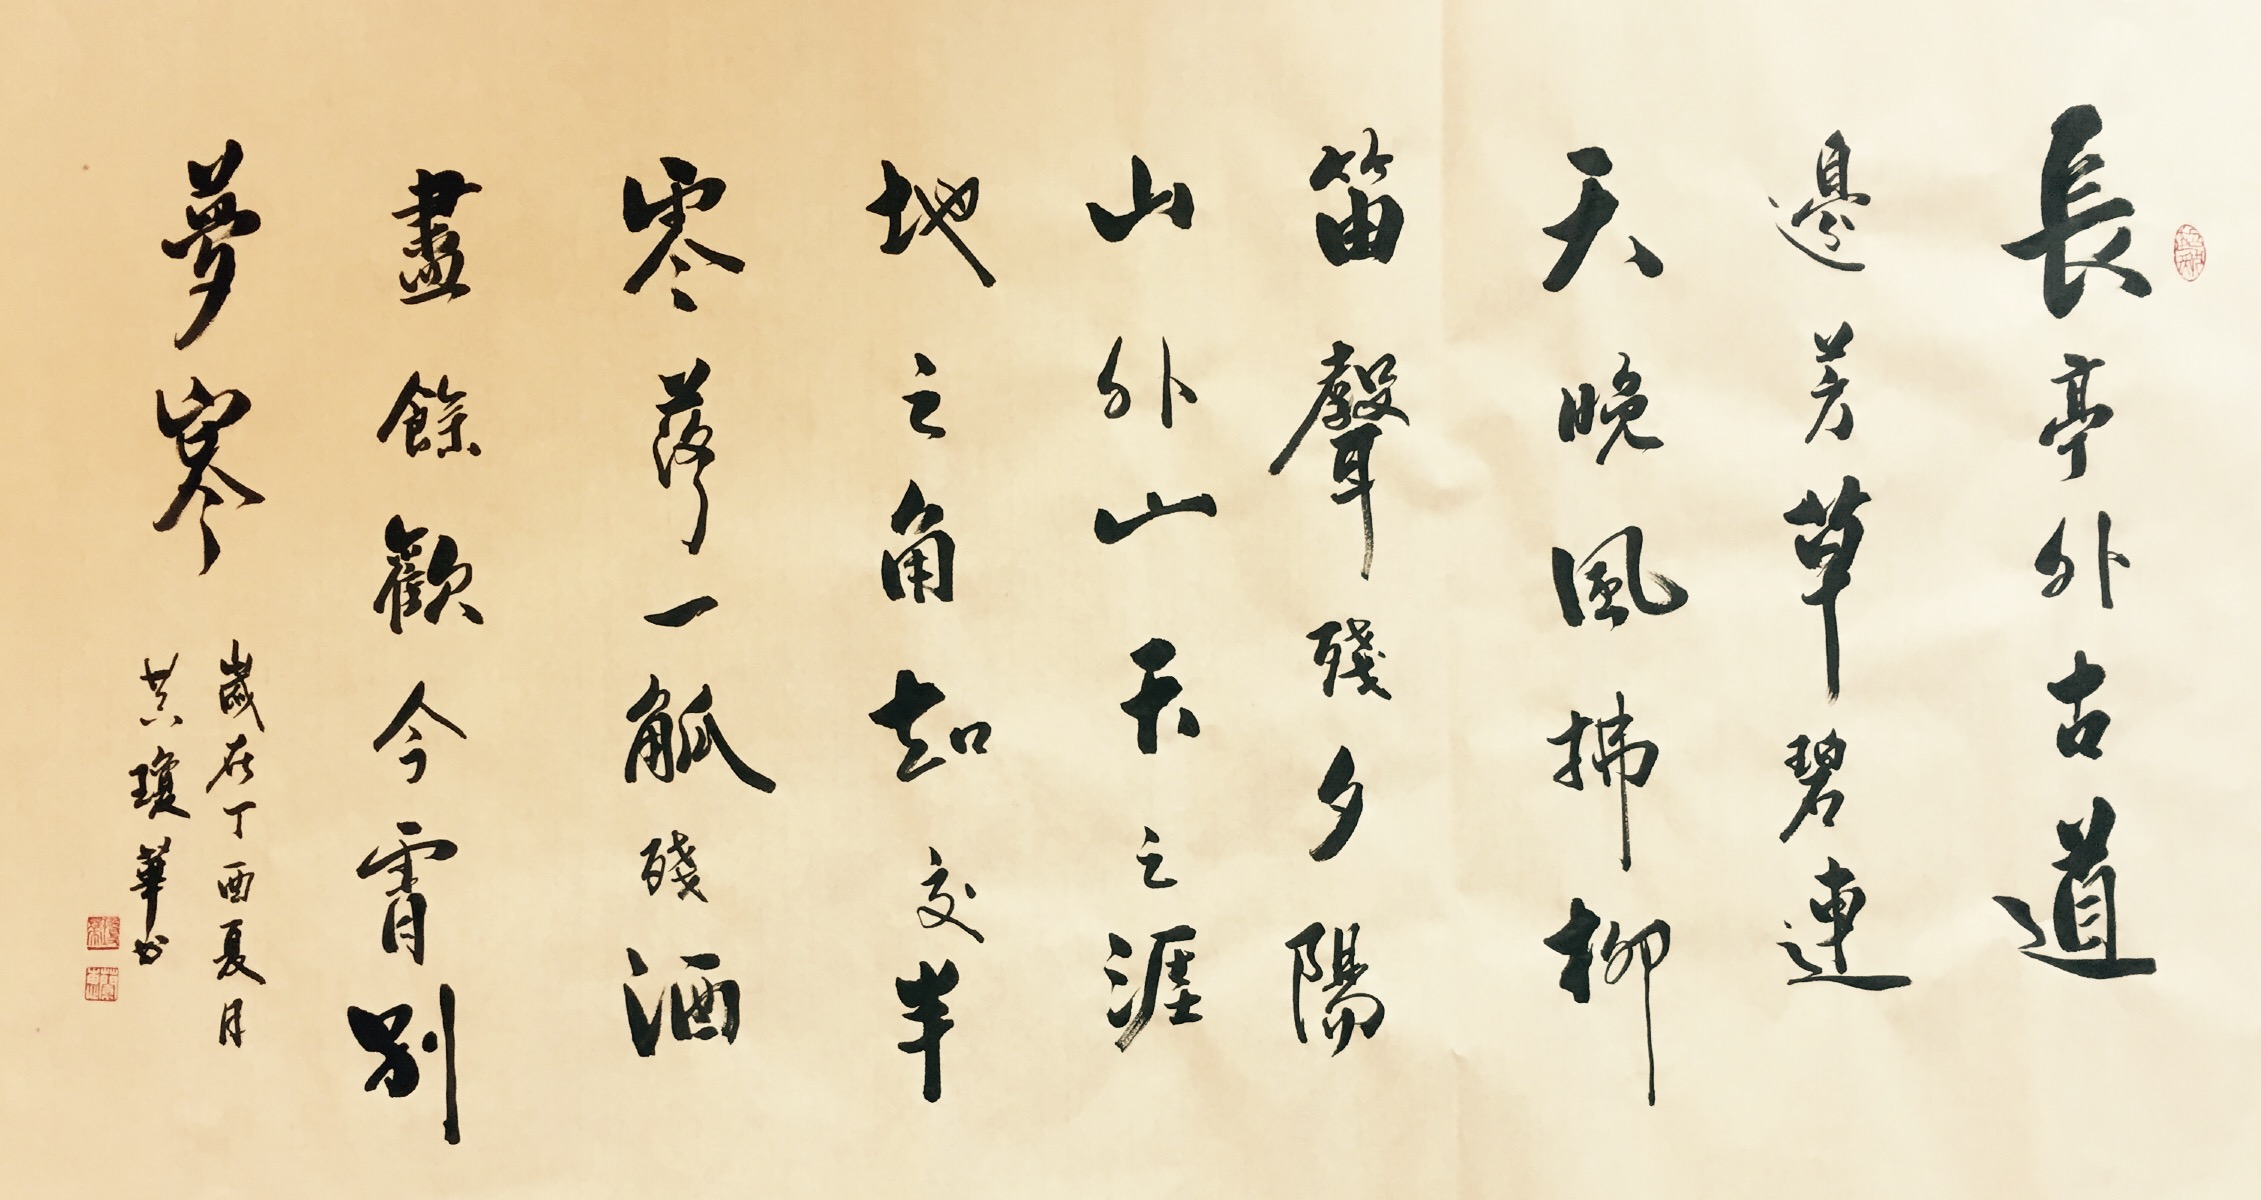 長亭外古道
邊芳草碧連
天晚風拂柳
笛聲殘夕陽
山外山天之涯
地之角知交半
零落一觚殘酒
盡餘歡今宵別
夢寒
歲在丁酉夏月
黄瓊華书